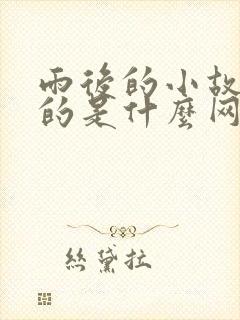 雨後的小故
的是什麼网
絲黛拉